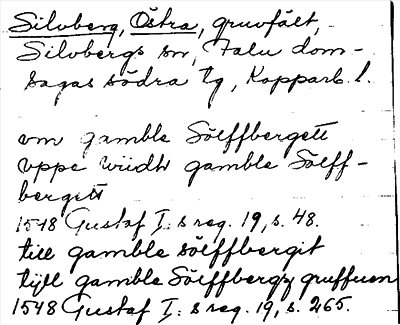 Silvberg, Östra, gruvfält,
Silvbergs sn, Falu dom-
sagas södra tg, Kopparb. l.
om gamble Sölffbergett
vppe wiidh gamble Sölff-
bergett
1548 Gustaf I:s reg. 19, s. 48.
till gamble sölffbergit
tijll gamble Sölffbergz gruffuen
1548 Gustaf I:s reg. 19, s. 265.